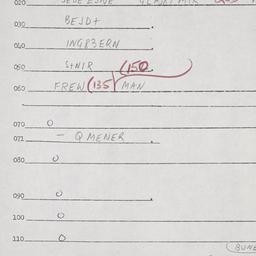 020
030 BEJD+
040 ING83ERN
050 S+NIR (150
060 FREW (135) MAN
070 O
071 — QMENER
080 O
090 O
100 O
110 O
(BUNE